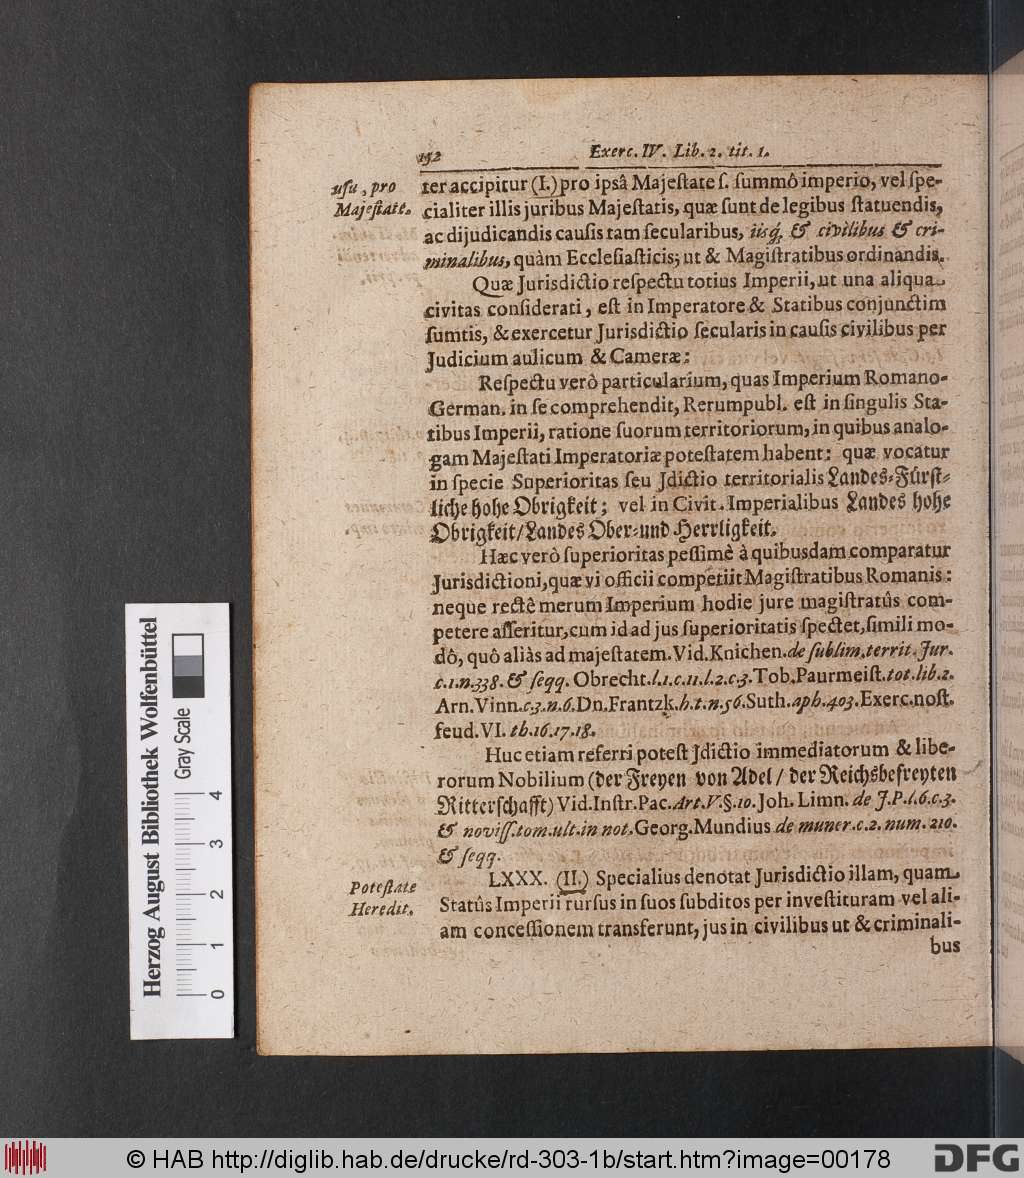 152 Exerc. IV. Lib. 2. tit. 1.
usu, pro
Majeſtate.
ter accipitur (I.) pro ipsâ Majeſtate ſ. ſummô imperio, vel ſpe-
cialiter illis juribus Majeſtatis, quæ ſunt de legibus ſtatuendis,
ac dijudicandis cauſis tam ſecularibus, iisq́; & civilibus & cri-
minalibus, quàm Eccleſiaſticis; ut & Magiſtratibus ordinandis.
Quæ Jurisdictio reſpectu totius Imperii, ut una aliqua
civitas conſiderati, eſt in Imperatore & Statibus conjunctim
ſumtis, & exercetur Jurisdictio ſecularis in cauſis civilibus per
Judicium aulicum & Cameræ:
Reſpectu verò particularium, quas Imperium Romano-
German. in ſe comprehendit, Rerumpubl. eſt in ſingulis Sta-
tibus Imperii, ratione ſuorum territoriorum, in quibus analo-
gam Majeſtati Imperatoriæ poteſtatem habent: quæ vocatur
in ſpecie Superioritas ſeu Jdictio territorialis Landes-Fürſt-
liche hohe Obrigkeit; vel in Civit. Imperialibus Landes hohe
Obrigkeit/Landes Ober-und Herrligkeit.
Hæc verò ſuperioritas peſſimè à quibusdam comparatur
Jurisdictioni, quæ vi officii competiit Magiſtratibus Romanis:
neque rectê merum Imperium hodie jure magiſtratûs com-
petere aſſeritur, cum id ad jus ſuperioritatis ſpectet, ſimili mo-
dô, quô aliàs ad majeſtatem. Vid. Knichen. de ſublim. territ. Jur.
c. 1. n. 338. & ſeqq. Obrecht. l. 1. c. 11. l. 2. c. 3. Tob. Paurmeiſt. tot. lib. 2.
Arn. Vinn. c. 3. n. 6. Dn. Frantzk. h. t. n. 56. Suth. aph. 403. Exerc. noſt.
feud. VI. th. 16. 17. 18.
Huc etiam referri poteſt Jdictio immediatorum & libe-
rorum Nobilium (der Freyen von Adel / der Reichsbefreyten
Ritterſchafft) Vid. Inſtr. Pac. Art. V. §. 10. Joh. Limn. de J. P. l. 6. c. 3.
& noviſſ. tom. ult. in not. Georg. Mundius de muner. c. 2. num. 210.
& ſeqq.
Poteſtate
Heredit.
LXXX. (II.) Specialius denotat Jurisdictio illam, quam
Statûs Imperii rurſus in ſuos ſubditos per inveſtituram vel ali-
am conceſſionem transferunt, jus in civilibus ut & criminali-
bus
Herzog August Bibliothek Wolfenbüttel
Gray Scale
0 1 2 3 4
© HAB http://diglib.hab.de/drucke/rd-303-1b/start.htm?image=00178
DFG